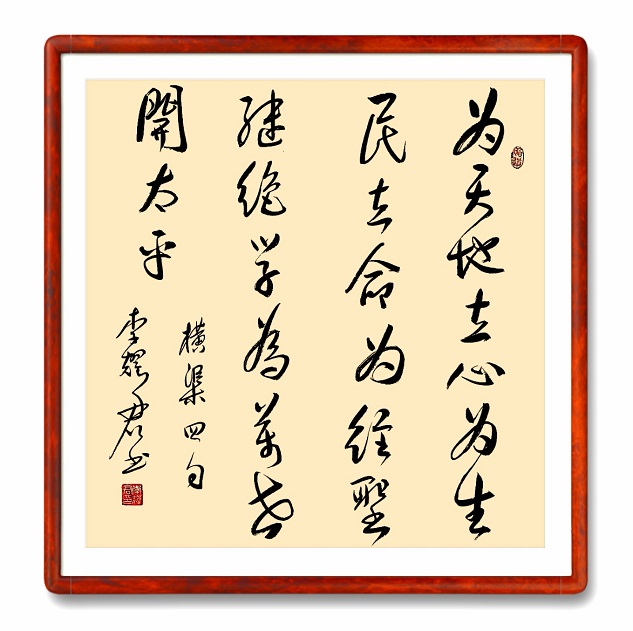 为天地立心为生
民立命为往聖
继绝学為萬世
開太平
橫渠四句
李耀君书